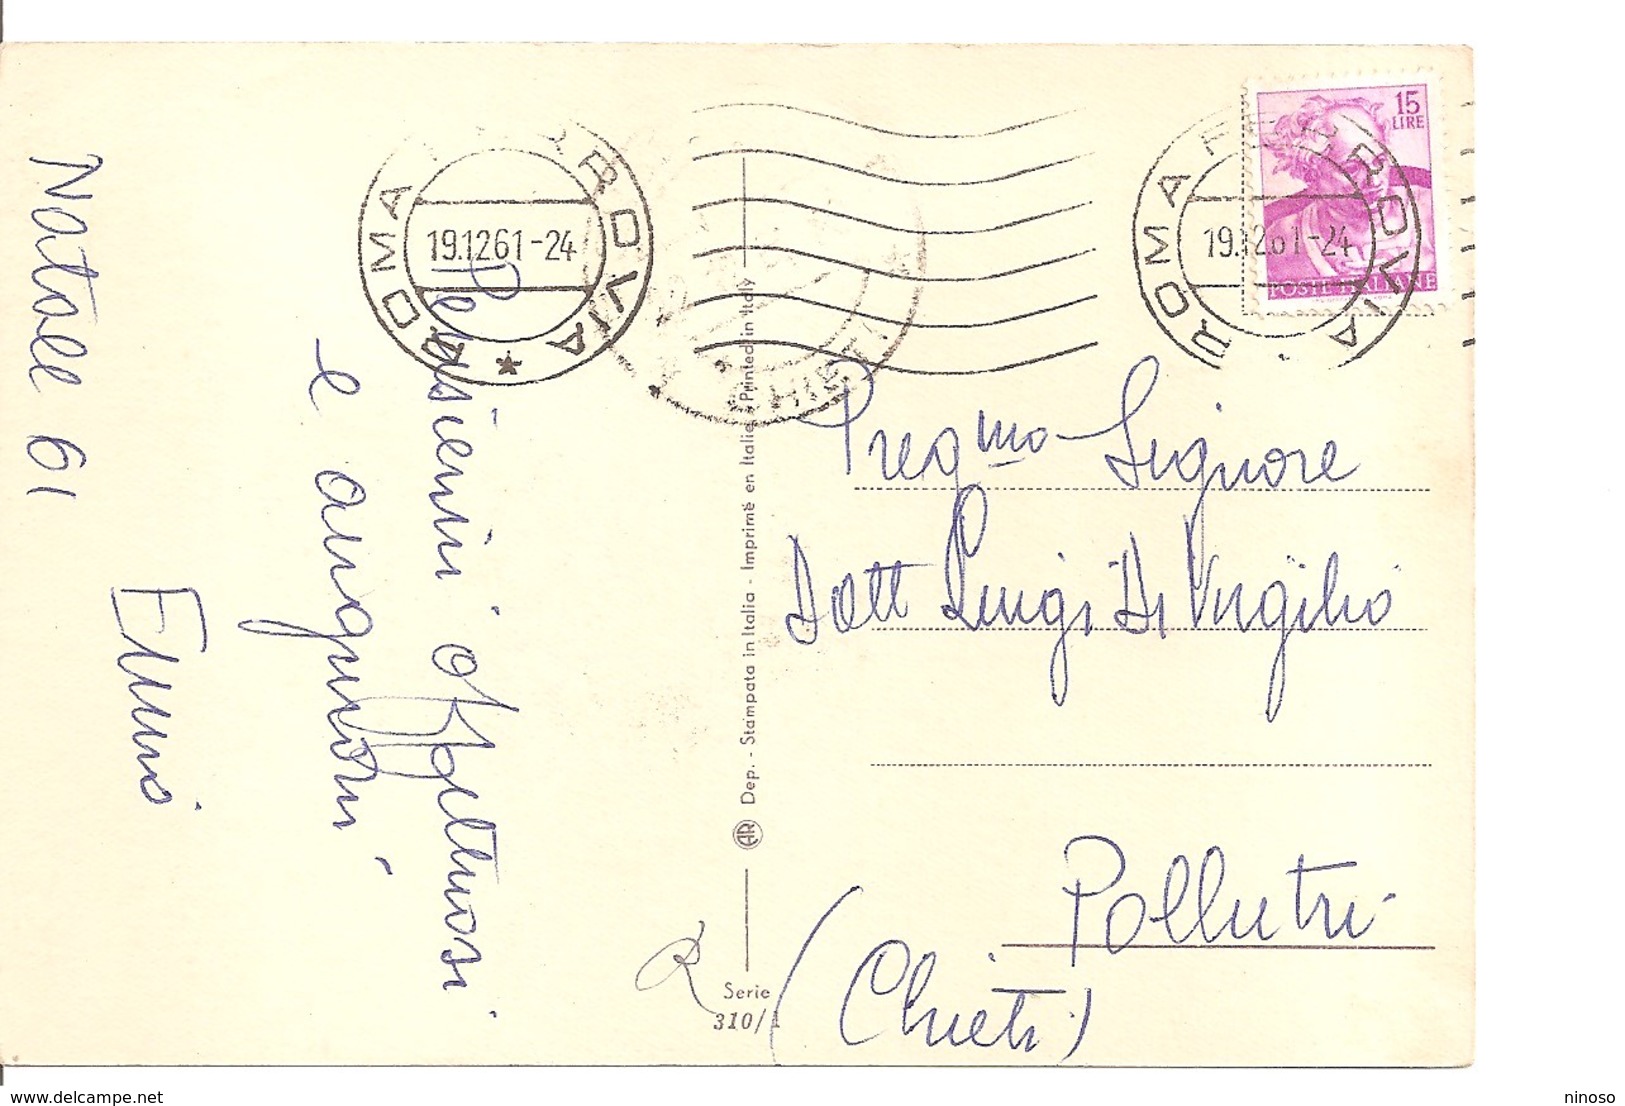 Natale 61
Pensierini affettuosi
e auguroni
Ennio
ROMA FERROVIA
19.12.61-24
ROMA FERROVIA
19.12.61-24
15
LIRE
POSTE ITALIANE
CHIETI
AR Dep. - Stampata in Italia - Imprimé en Italie - Printed in Italy
Serie
310/1
R
Pregmo Signore
Dott Luigi Di Virgilio
Pollutri
(Chieti)
www.delcampe.net
ninoso